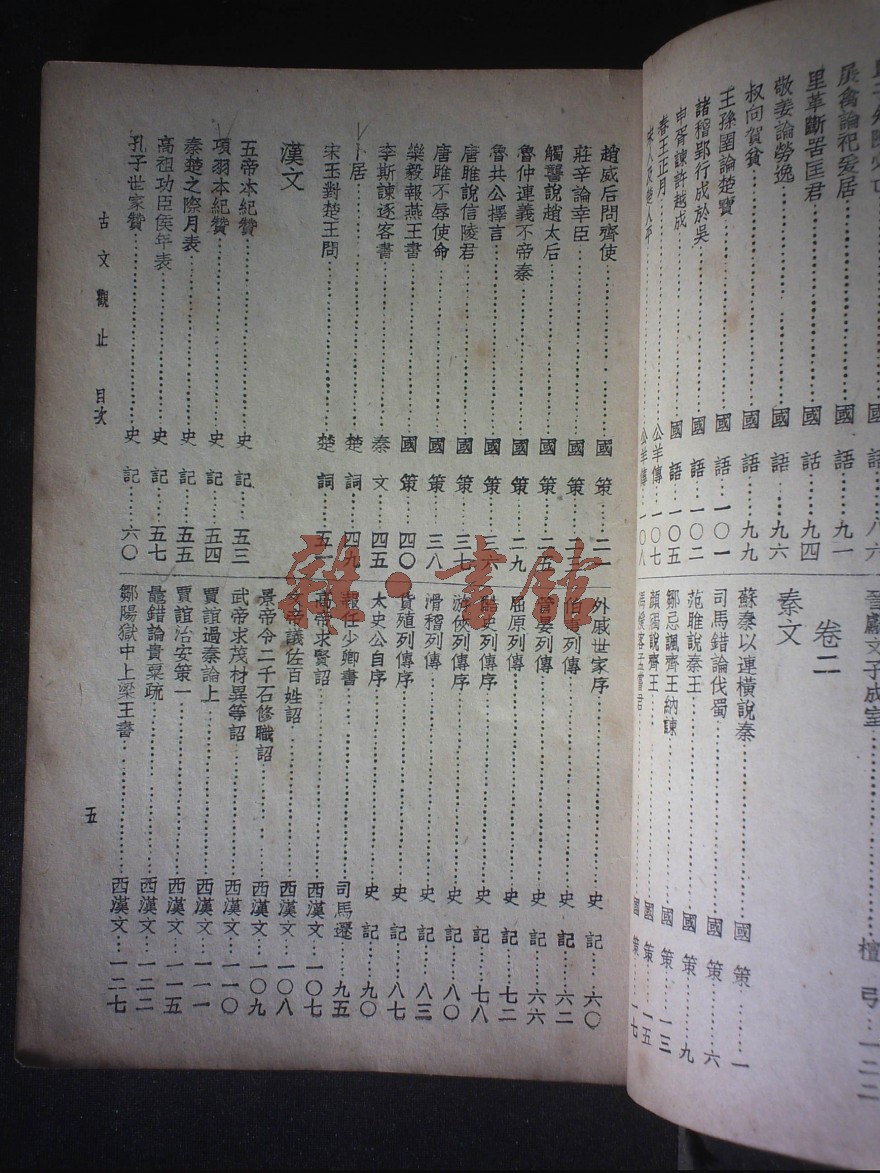 里革斷罟匡君……國語……九四
敬姜論勞逸……國語……九六
叔向賀貧……國語……九九
王孫圉論楚寶……國語……一〇一
諸稽郢行成於吳……國語……一〇二
申胥諫許越成……國語……一〇五
春王正月……公羊傳……一〇七
檀弓……一二二
卷二
秦文
蘇秦以連橫說秦……國策……一
司馬錯論伐蜀……國策……六
范雎說秦王……國策……九
鄒忌諷齊王納諫……國策……一三
顏斶說齊王……國策……一五
趙威后問齊使……國策……二一
莊辛論幸臣……國策
觸讋說趙太后……國策……二五
魯仲連義不帝秦……國策……二九
魯共公擇言……國策……三六
唐雎說信陵君……國策……三七
唐雎不辱使命……國策……三八
樂毅報燕王書……國策……四〇
李斯諫逐客書……秦文……四五
卜居……楚詞……四九
宋玉對楚王問……楚詞……五一
漢文
五帝本紀贊……史記……五三
項羽本紀贊……史記……五四
秦楚之際月表……史記……五五
高祖功臣侯年表……史記……五七
孔子世家贊……史記……六〇
外戚世家序……史記……六〇
伯夷列傳……史記……六二
管晏列傳……史記……六六
屈原列傳……史記……七二
酷吏列傳序……史記……七八
游俠列傳序……史記……八〇
滑稽列傳……史記……八三
貨殖列傳序……史記……八七
太史公自序……史記……九〇
報任少卿書……司馬遷……九五
高帝求賢詔……西漢文……一〇七
文帝議佐百姓詔……西漢文……一〇八
景帝令二千石修職詔……西漢文……一〇九
武帝求茂材異等詔……西漢文……一一〇
賈誼過秦論上……西漢文……一一一
賈誼治安策一……西漢文……一一五
鼂錯論貴粟疏……西漢文……一二二
鄒陽獄中上梁王書……西漢文……一二七
古文觀止 目次
五
雜·書館